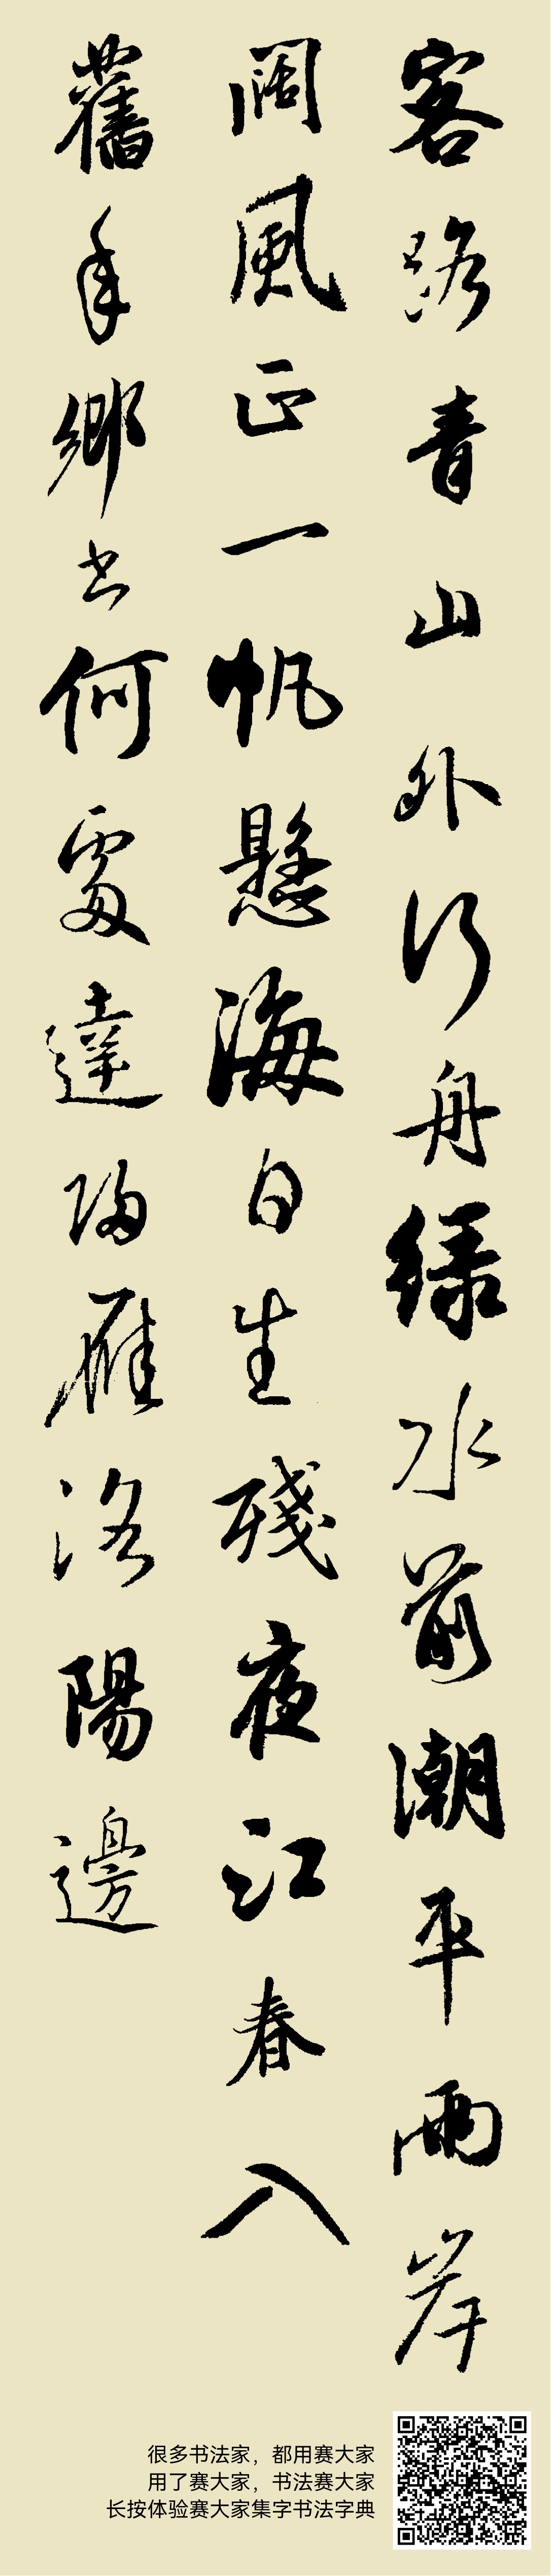 客路青山外行舟绿水前潮平兩岸
闊風正一帆懸海日生殘夜江春入
舊年鄉书何處達歸雁洛陽邊
很多书法家，都用赛大家
用了赛大家，书法赛大家
长按体验赛大家集字书法字典